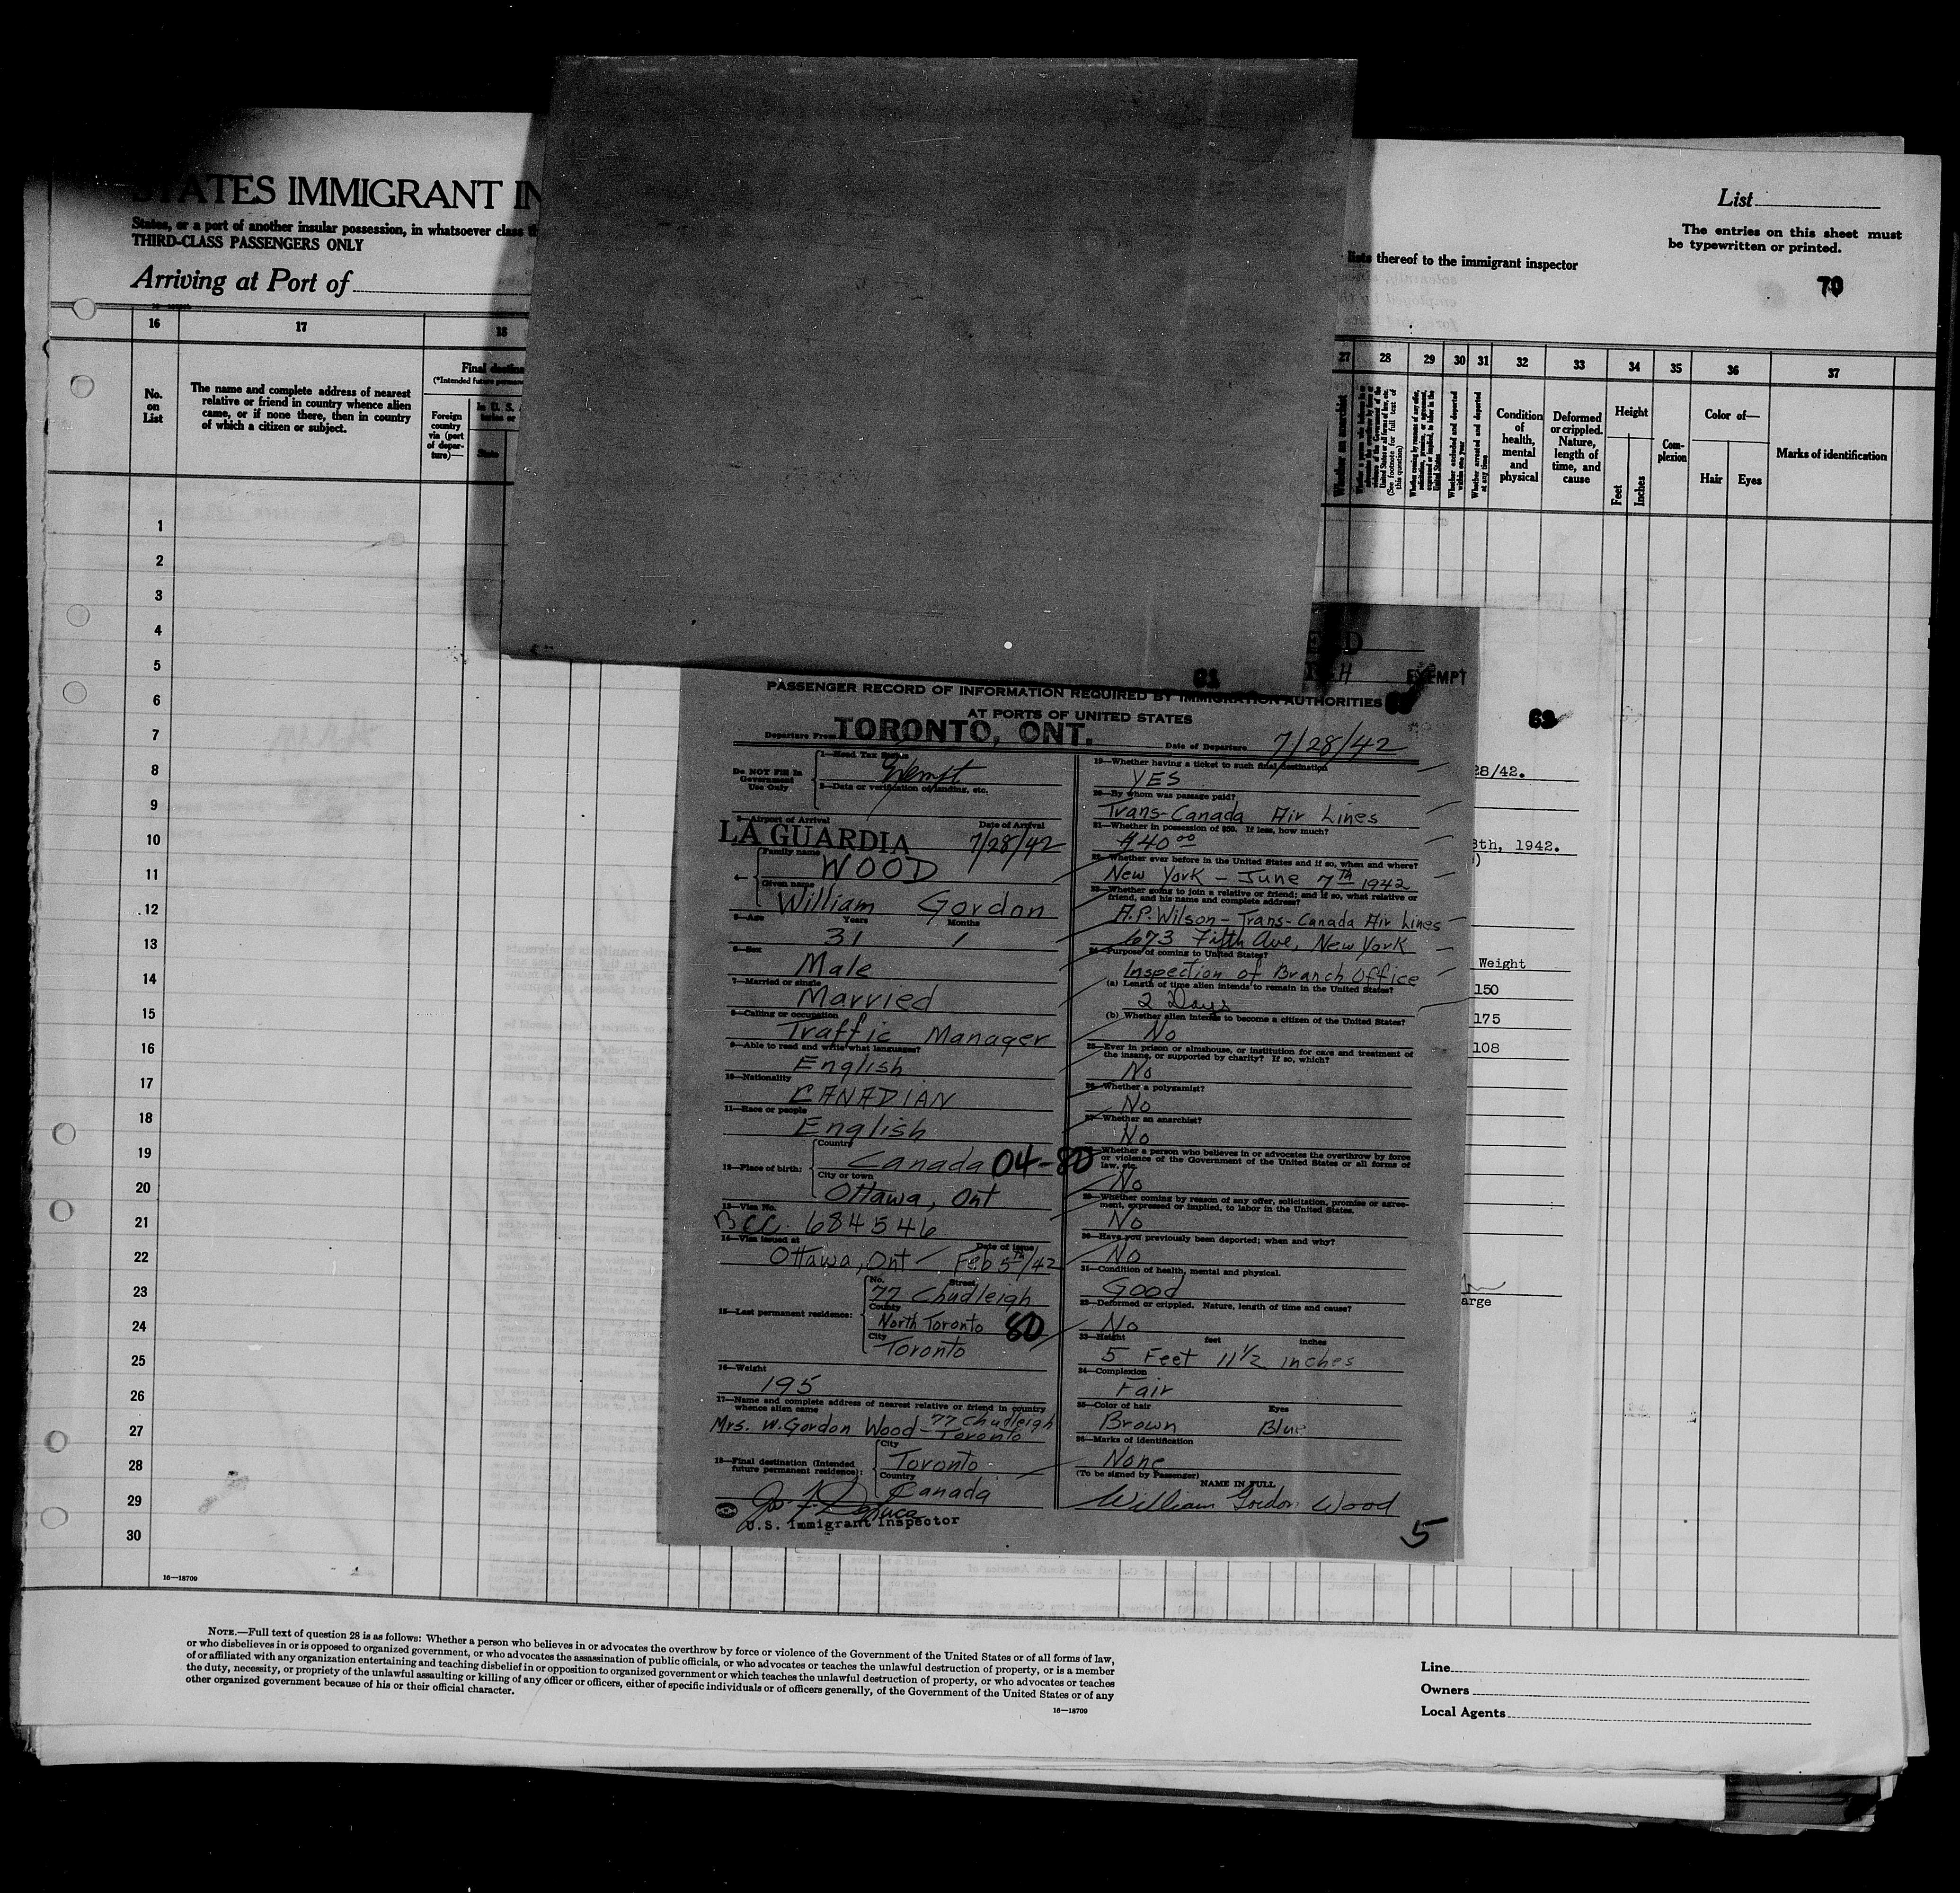 STATES IMMIGRANT IN
States, or a port of another insular possession, in whatsoever class
THIRD-CLASS PASSENGERS ONLY
Arriving at Port of
List
The entries on this sheet must
be typewritten or printed.
lists thereof to the immigrant inspector
70
16 17 18 27 28 29 30 31 32 33 34 35 36 37
No. on List
The name and complete address of nearest
relative or friend in country whence alien
came, or if none there, then in country
of which a citizen or subject.
Final
Foreign
country
via (port
of depar-
ture)—
State
Whether an anarchist
(See footnote for full text of
this question)
Whether excluded and deported
within one year
Whether arrested and deported
at any time
Condition
of
health,
mental
and
physical
Deformed
or crippled.
Nature,
length of
time, and
cause
Height
Feet
Inches
Com-
plexion
Color of—
Hair Eyes
Marks of identification
1
2
3
4
5
6
7
8
9
10
11
12
13
14
15
16
17
18
19
20
21
22
23
24
25
26
27
28
29
30
16—18709
EXEMPT
28/42.
8th, 1942.
Weight
150
175
108
arge
PASSENGER RECORD OF INFORMATION REQUIRED BY IMMIGRATION AUTHORITIES
AT PORTS OF UNITED STATES
Departure From TORONTO, ONT. Date of Departure 7/28/42
Do NOT Fill In
Government
Use Only
1—Head Tax Status
Exempt
2—Data or verification of landing, etc.
3—Airport of Arrival Date of Arrival
LA GUARDIA 7/28/42
4— Family name
WOOD
Given name
William Gordon
5—Age Years Months
31 1
6—Sex
Male
7—Married or single
Married
8—Calling or occupation
Traffic Manager
9—Able to read and write what languages?
English
10—Nationality
CANADIAN
11—Race or people
English
12—Place of birth: Country
Canada 04-80
City or town
Ottawa, Ont
13—Visa No.
BCC. 684546
14—Visa issued at Date of issue
Ottawa, Ont – Feb 5th/42
15—Last permanent residence: No. Street
77 Chudleigh
County
North Toronto 80
City
Toronto
16—Weight
195
17—Name and complete address of nearest relative or friend in country
whence alien came
Mrs. W. Gordon Wood – 77 Chudleigh
Toronto
18—Final destination (Intended
future permanent residence): City
Toronto
Country
Canada
U.S. Immigrant Inspector
19—Whether having a ticket to such final destination
YES
20—By whom was passage paid?
Trans-Canada Air Lines
21—Whether in possession of $50. If less, how much?
$40 00
22—Whether ever before in the United States and if so, when and where?
New York – June 7th 1942
23—Whether going to join a relative or friend; and if so, what relative or
friend, and his name and complete address?
A.P. Wilson – Trans-Canada Air Lines
673 Fifth Ave, New York
24—Purpose of coming to United States?
Inspection of Branch Office
(a) Length of time alien intends to remain in the United States?
2 Days
(b) Whether alien intends to become a citizen of the United States?
No
25—Ever in prison or almshouse, or institution for care and treatment of
the insane, or supported by charity? If so, which?
No
26—Whether a polygamist?
No
27—Whether an anarchist?
No
28—Whether a person who believes in or advocates the overthrow by force
or violence of the Government of the United States or all forms of
law, etc.
No
29—Whether coming by reason of any offer, solicitation, promise or agree-
ment, expressed or implied, to labor in the United States.
No
30—Have you previously been deported; when and why?
No
31—Condition of health, mental and physical.
Good
32—Deformed or crippled. Nature, length of time and cause?
No
33—Height feet inches
5 Feet 11 1/2 inches
34—Complexion
Fair
35—Color of hair Eyes
Brown Blue
36—Marks of identification
None
(To be signed by Passenger)
NAME IN FULL
William Gordon Wood
5
NOTE.—Full text of question 28 is as follows: Whether a person who believes in or advocates the overthrow by force or violence of the Government of the United States or of all forms of law,
or who disbelieves in or is opposed to organized government, or who advocates the assassination of public officials, or who advocates or teaches the unlawful destruction of property, or is a member
of or affiliated with any organization entertaining and teaching disbelief in or opposition to organized government or which teaches the unlawful destruction of property, or who advocates or teaches
the duty, necessity, or propriety of the unlawful assaulting or killing of any officer or officers, either of specific individuals or of officers generally, of the Government of the United States or of any
other organized government because of his or their official character.
16—18709
Line
Owners
Local Agents